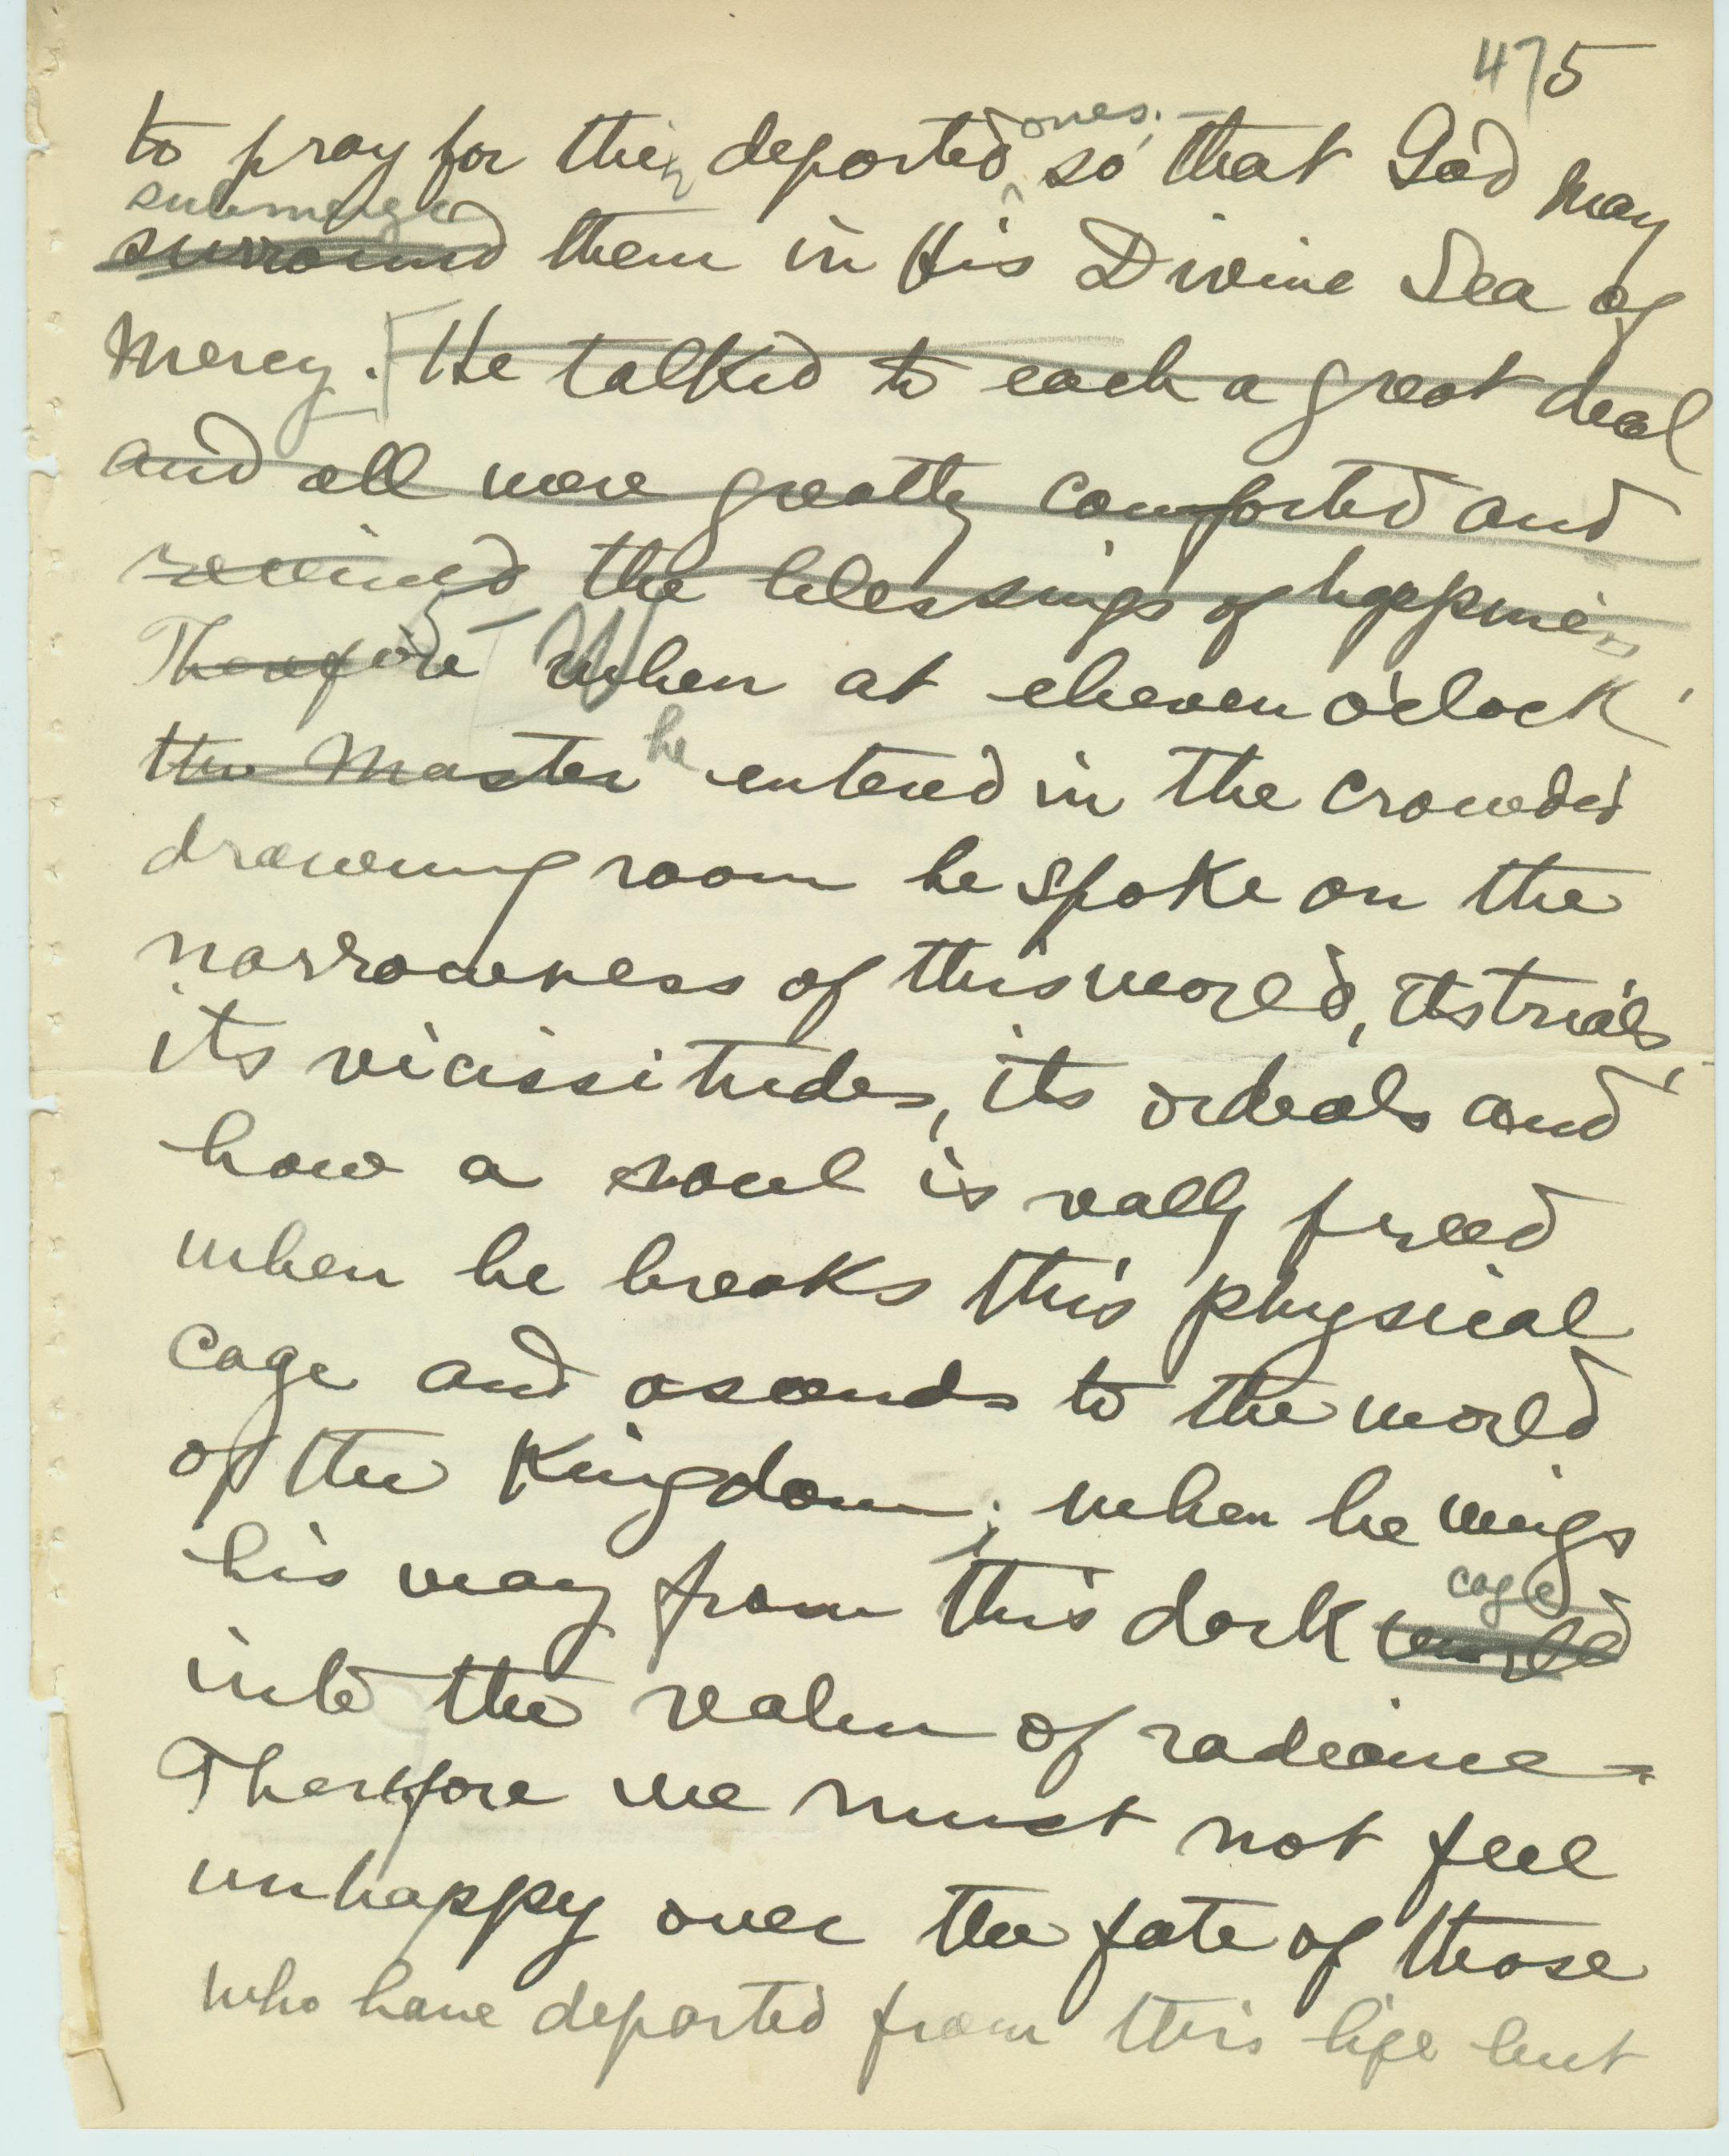 475
to pray for their departed ones. so that God may
submerge
surround them in His Divine Sea of
Mercy. He talked to each a great deal
and all were greatly comforted and
received the blessings of happiness
Therefore When at eleven o'clock
the Master he entered in the crowded
drawing room he spoke on the
narrowness of this world, its trials,
its vicissitudes, its ordeals and
how a soul is really freed
when he breaks this physical
cage and ascends to the world
of the Kingdom; when he wings
his way from this dark cage world
into the realm of radiance.
Therefore we must not feel
unhappy over the fate of those
who have departed from this life but